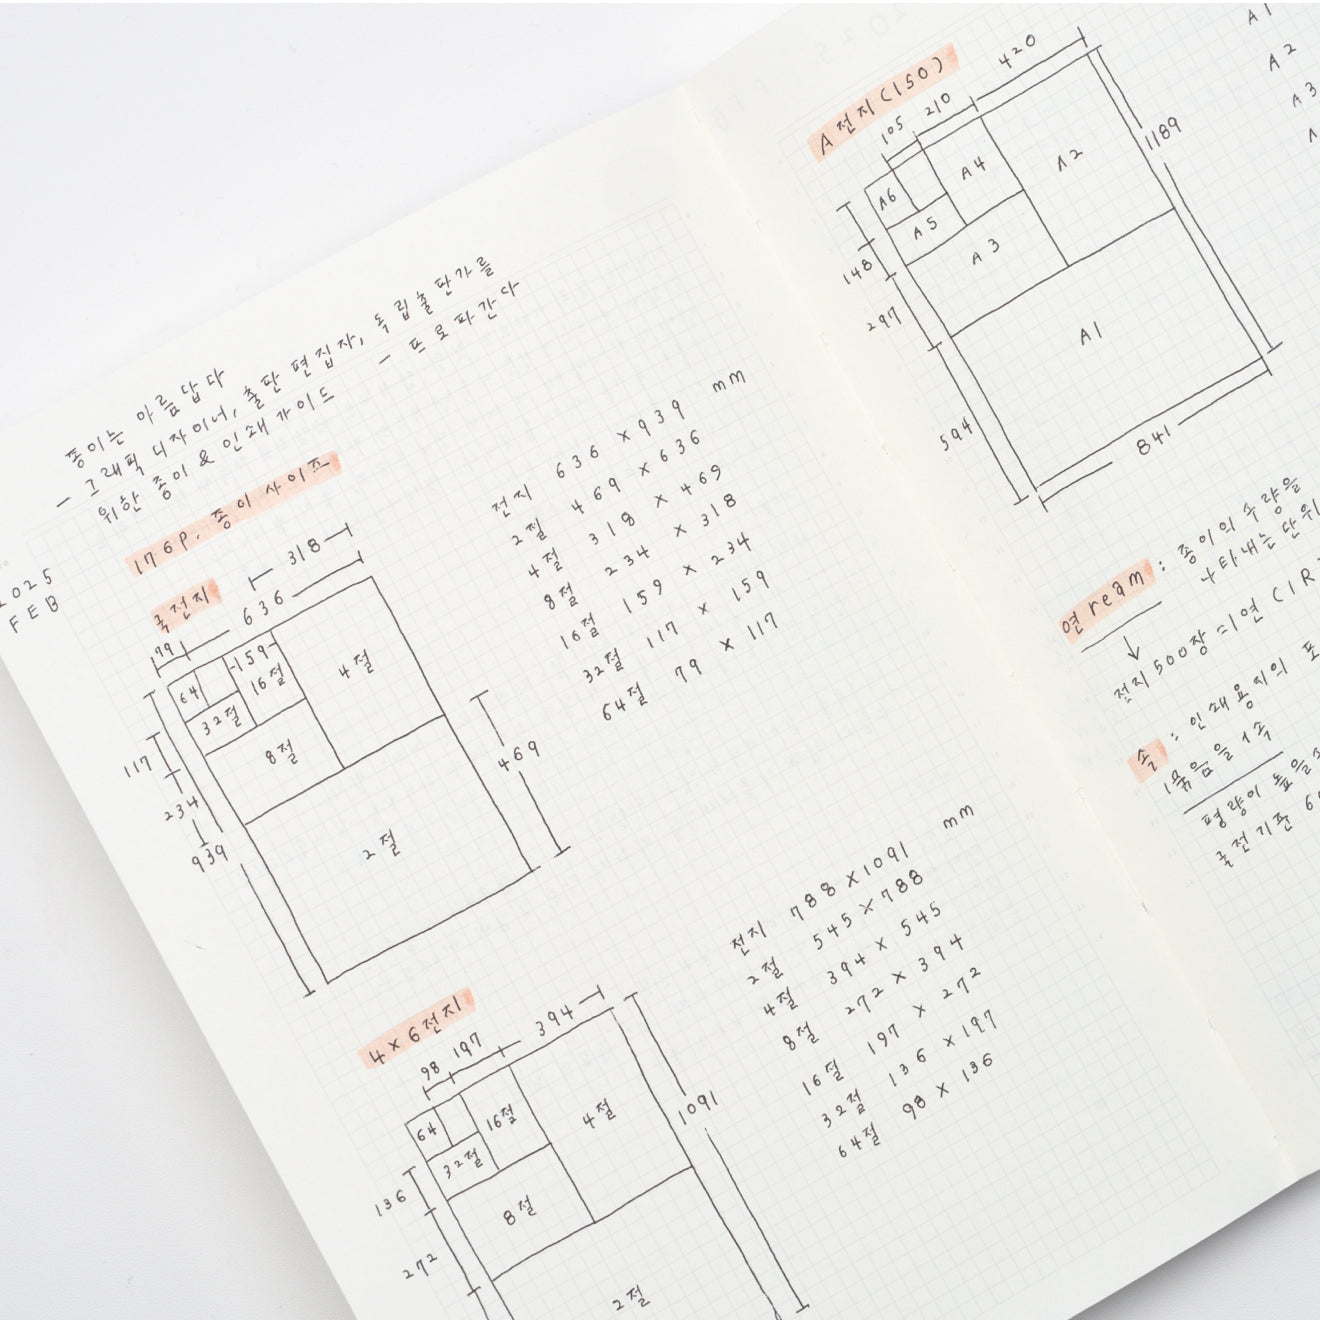 2025
FEB
종이는 아름답다
— 그래픽 디자이너, 출판 편집자, 독립출판가를
위한 종이 & 인쇄 가이드 — 프로파간다
176p. 종이 사이즈
국전지
318
636
79
159
64
16절
4절
32절
8절
2절
117
234
939
469
mm
전지 636 × 939
2절 469 × 636
4절 318 × 469
8절 234 × 318
16절 159 × 234
32절 117 × 159
64절 79 × 117
4×6전지
98 197 394
64
16절
4절
32절
8절
2절
136
272
1091
mm
전지 788 × 1091
2절 545 × 788
4절 394 × 545
8절 272 × 394
16절 197 × 272
32절 136 × 197
64절 98 × 136
A전지(ISO)
105 210 420
A6
A4
A2
A5
A3
A1
148
297
594
841
1189
A1
A2
A3
연 ream : 종이의 수량을
나타내는 단위
전지 500장 = 1연 (1R
속 : 인쇄용지의 포
1묶음을 1속
평량이 높을
국전기준